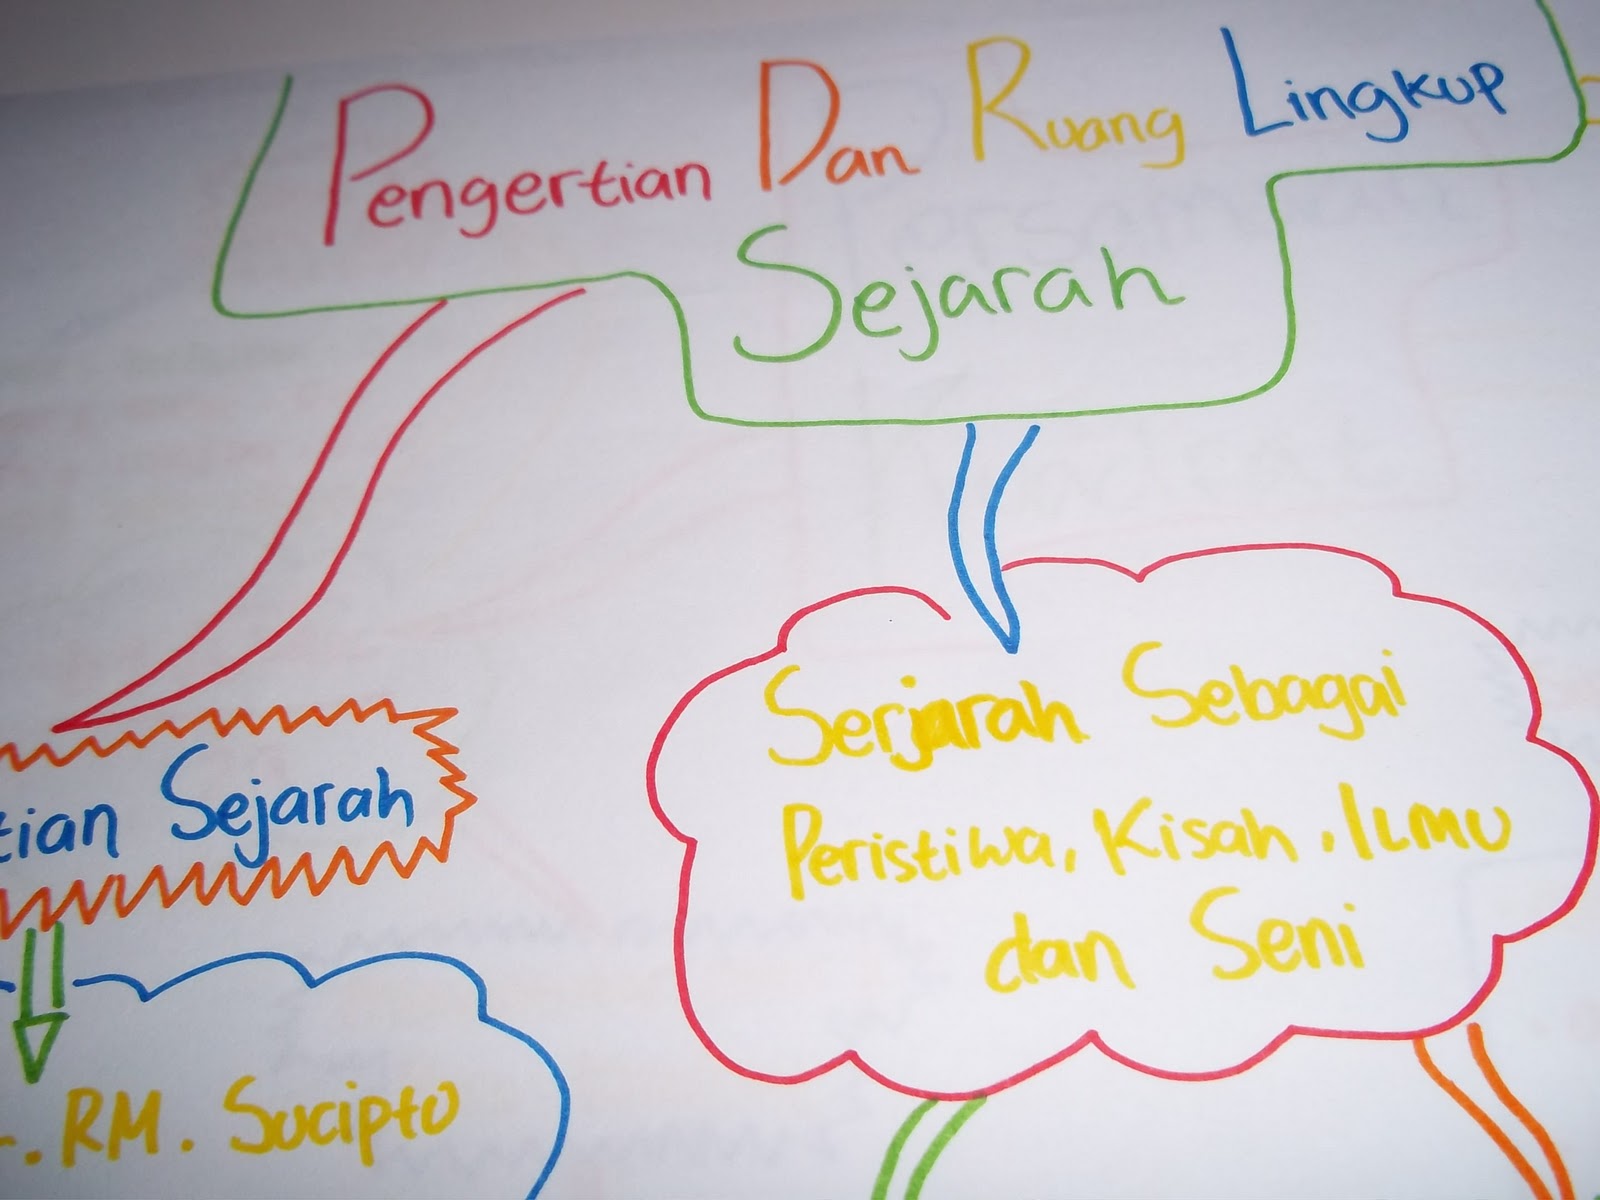 Pengertian Dan Ruang Lingkup
Sejarah
tian Sejarah
RM. Sucipto
Serjarah Sebagai
Peristiwa, Kisah, Ilmu
dan Seni